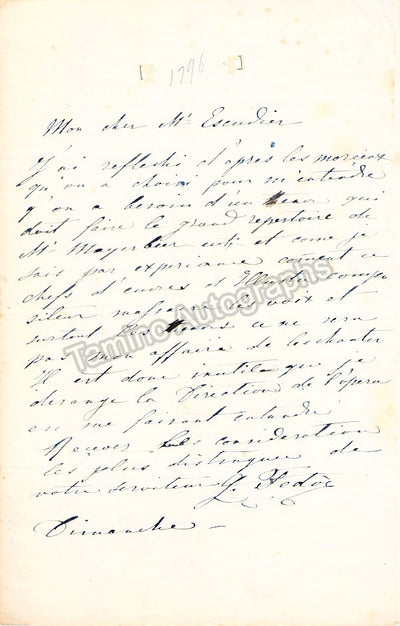 [ 1796 . ]
Mon cher Mr Escudier
J'ai reflechi d'après les morceaux
qu'on a choisi pour m'entendre
q'on a besoin d'un tenor qui
doit faire le grand repertoire de
Mr Mayerbeer et come je
sais par experiance coment ce
chefs d'euvres et Illustre compo
siteur les voix et
surtout les tenors ce ne sera
pas mon affaire de les chanter
Il est donc inutile que je
derange la Direction de l'opera
en me faisant entendre
Recevez les consideration
les plus distinguee de
votre serviteur G.
Dimanche —
Tamino Autographs